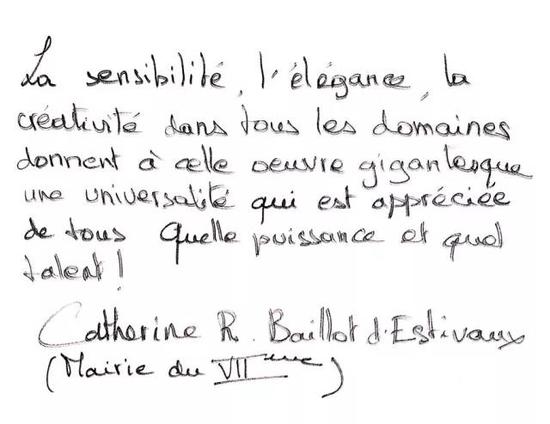 La sensibilité, l'élégance, la
créativité dans tous les domaines
donnent à cette oeuvre gigantesque
une universalité qui est appréciée
de tous Quelle puissance et quel
talent!
Catherine R. Baillot d'Estivaux
(Mairie du VIIème)